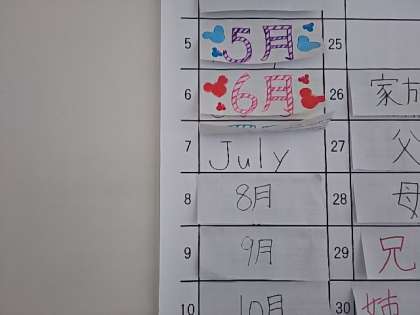 5 5月 25
6 6月 26 家族
7 July 27 父
8 8月 28 母
9 9月 29 兄
10 10月 30 姉